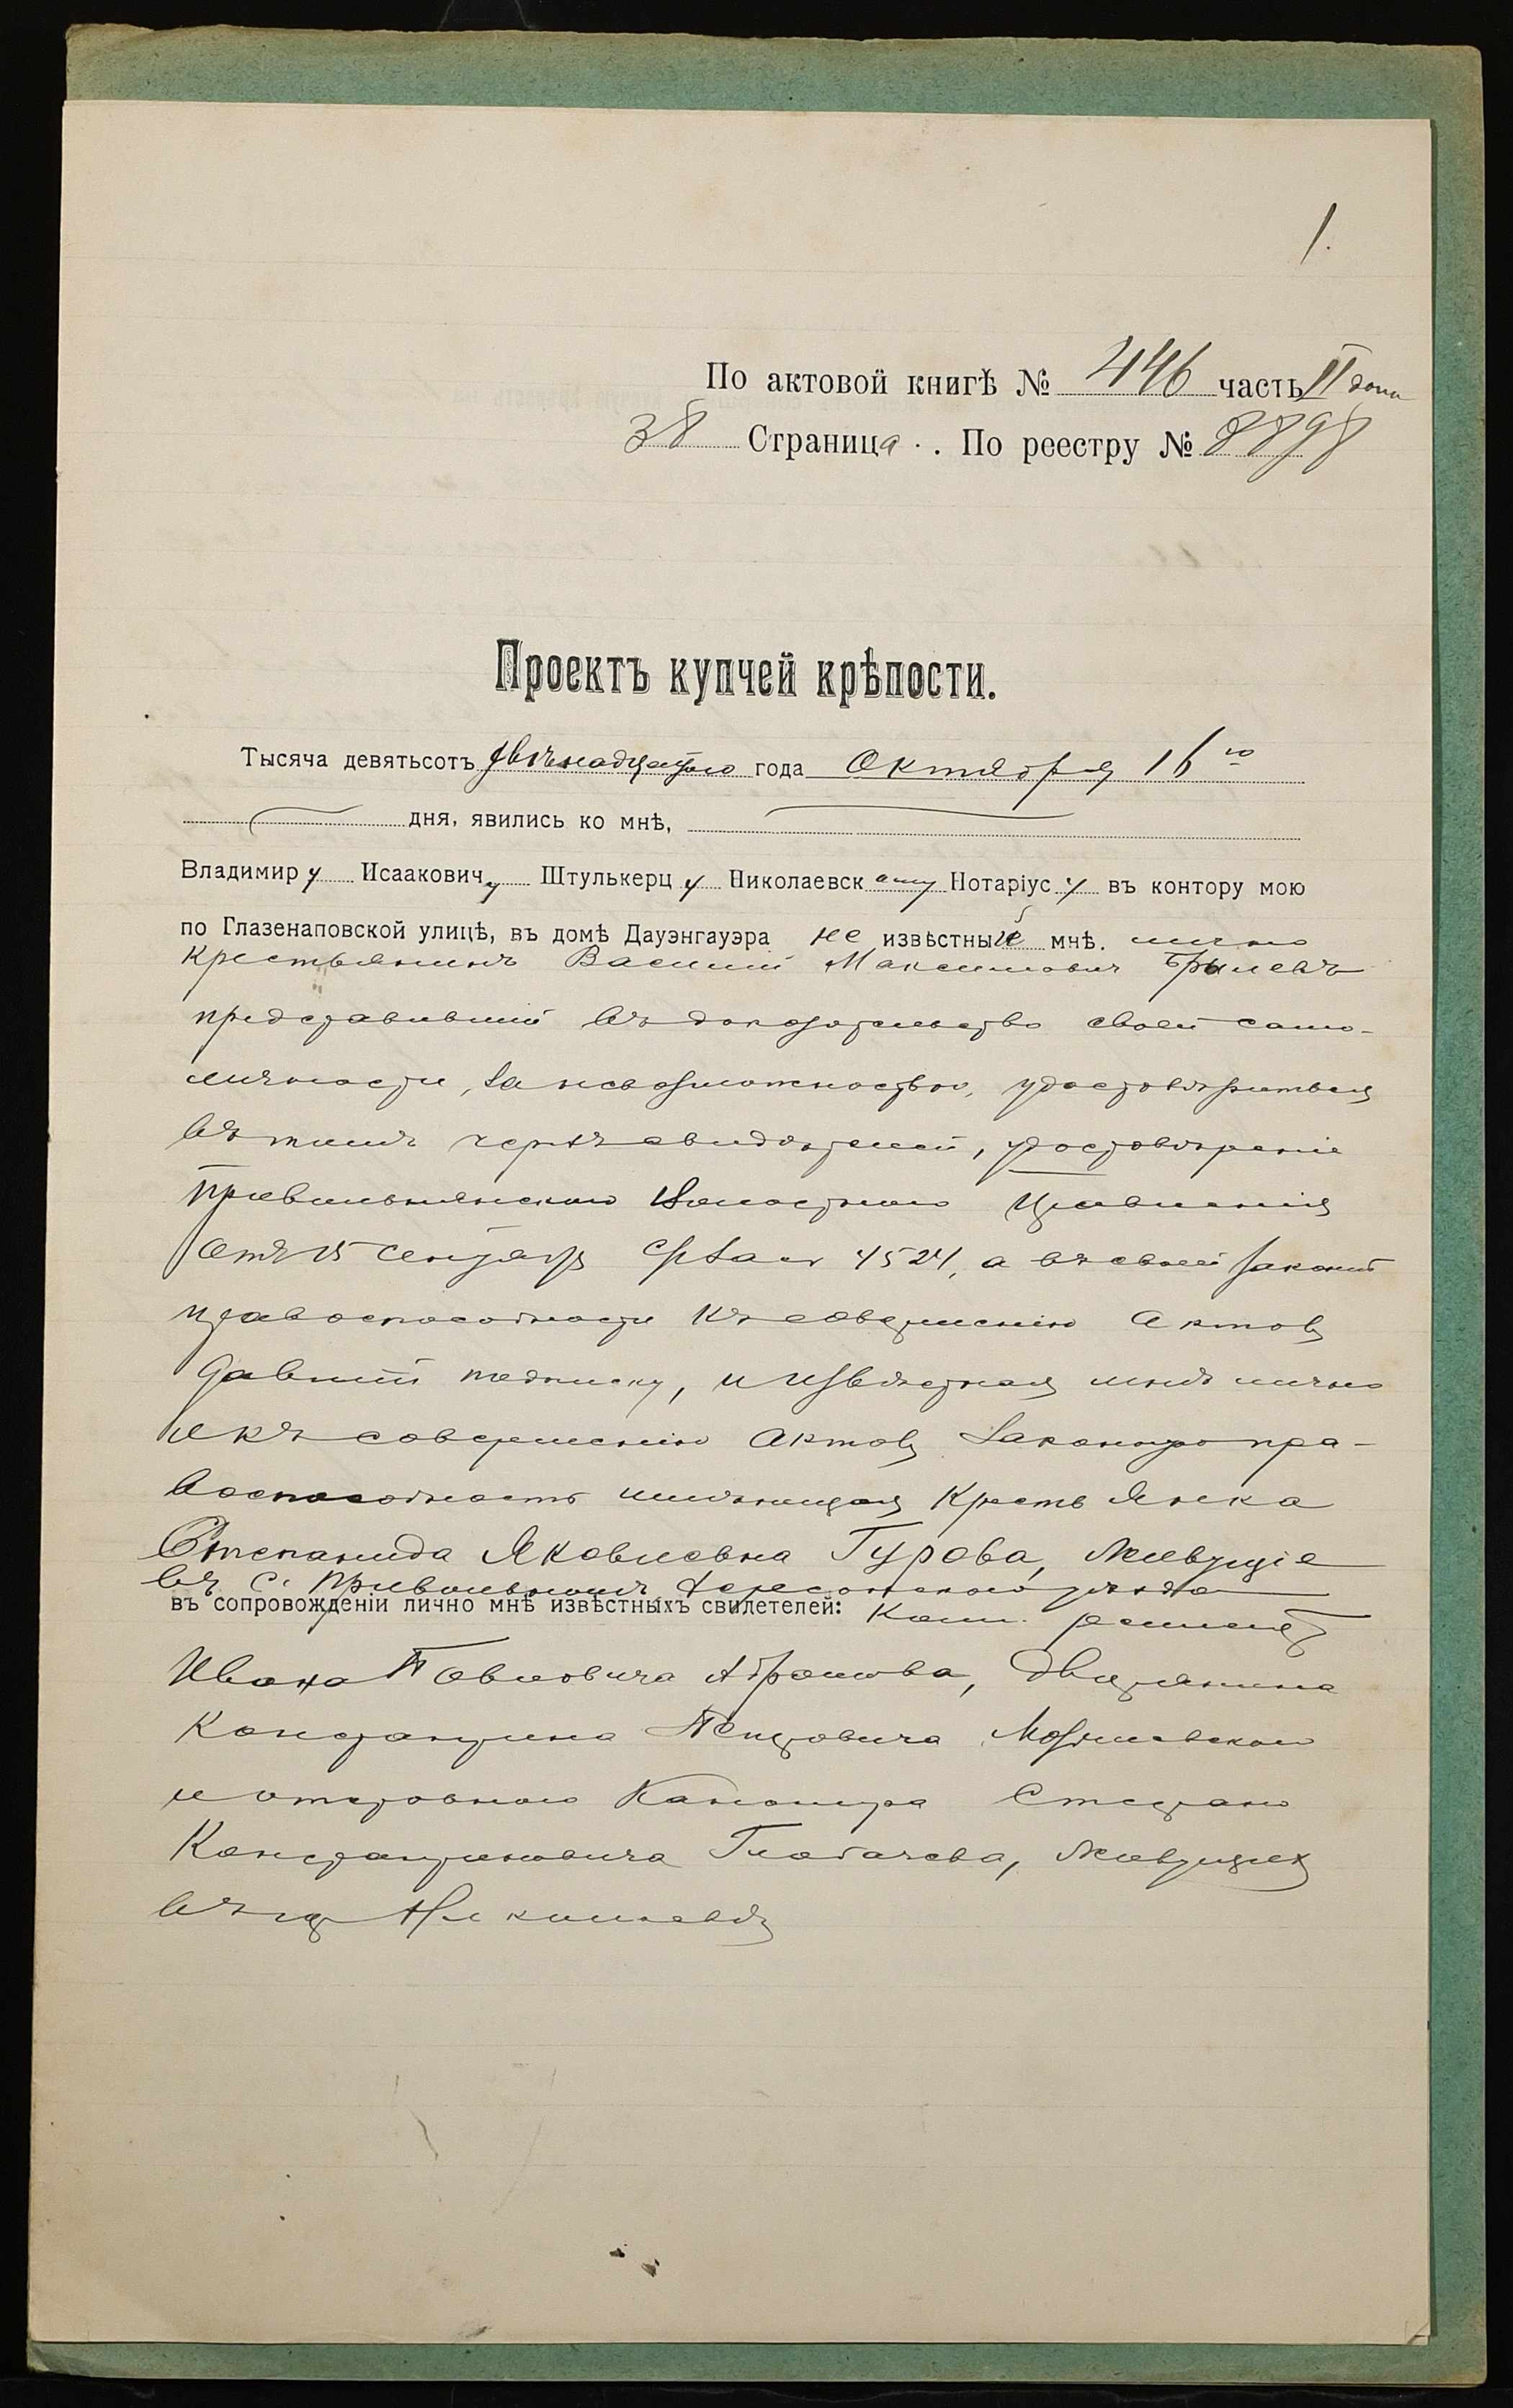 1.
По актовой книгѣ № 446 часть II
38 Страница. По реестру № 8898
Проектъ купчей крѣпости.
Тысяча девятьсотъ двѣнадцатого года Октября 16го
дня, явились ко мнѣ,
Владимиру Исааковичу Штулькерцу Николаевскому Нотаріусу въ контору мою
по Глазенаповской улицѣ, въ домѣ Дауэнгауэра не извѣстный мнѣ. лично
Крестьянинъ Василий Максимович Брылевъ
представивший въ доказательство своей само-
личности, за невозможностью, удостовѣриться
въ томъ чрезъ свидѣтелей, удостовѣреніе
Привольнянскаго Волостного Правленія
отъ 15 Сентября с/г за № 4524, а въ своей законной
правоспособности къ совершенію Актовъ
давший подписку, и извѣстная мнѣ лично
и къ совершенію Актовъ законную пра-
воспособность имѣющая Крестьянка
Степанида Яковлевна Гурова, живущіе
въ с. Привольномъ Херсонскаго уѣзда
въ сопровожденіи лично мнѣ извѣстныхъ свидетелей: Колл.
Ивана Павловича Абрамова, Дворянина
Константина Петровича
и отставного Канонира Стефана
Константиновича Глобачева, живущих
въ гор Николаевѣ